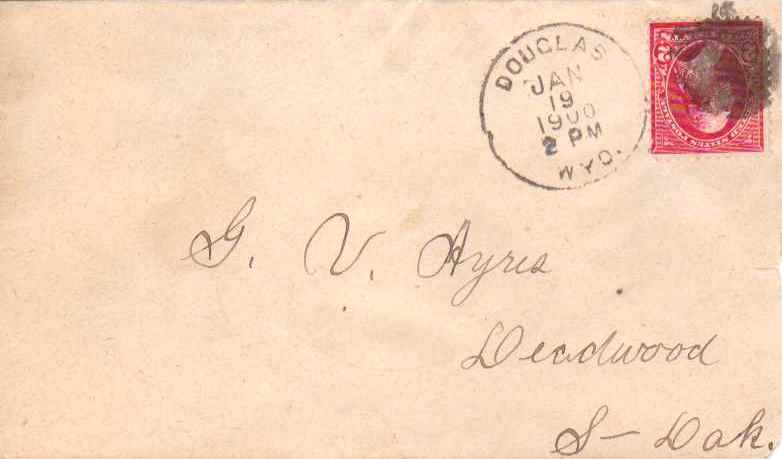 DOUGLAS
JAN
19
1900
2 PM
WYO.
G. V. Ayres
Deadwood
S- Dak.